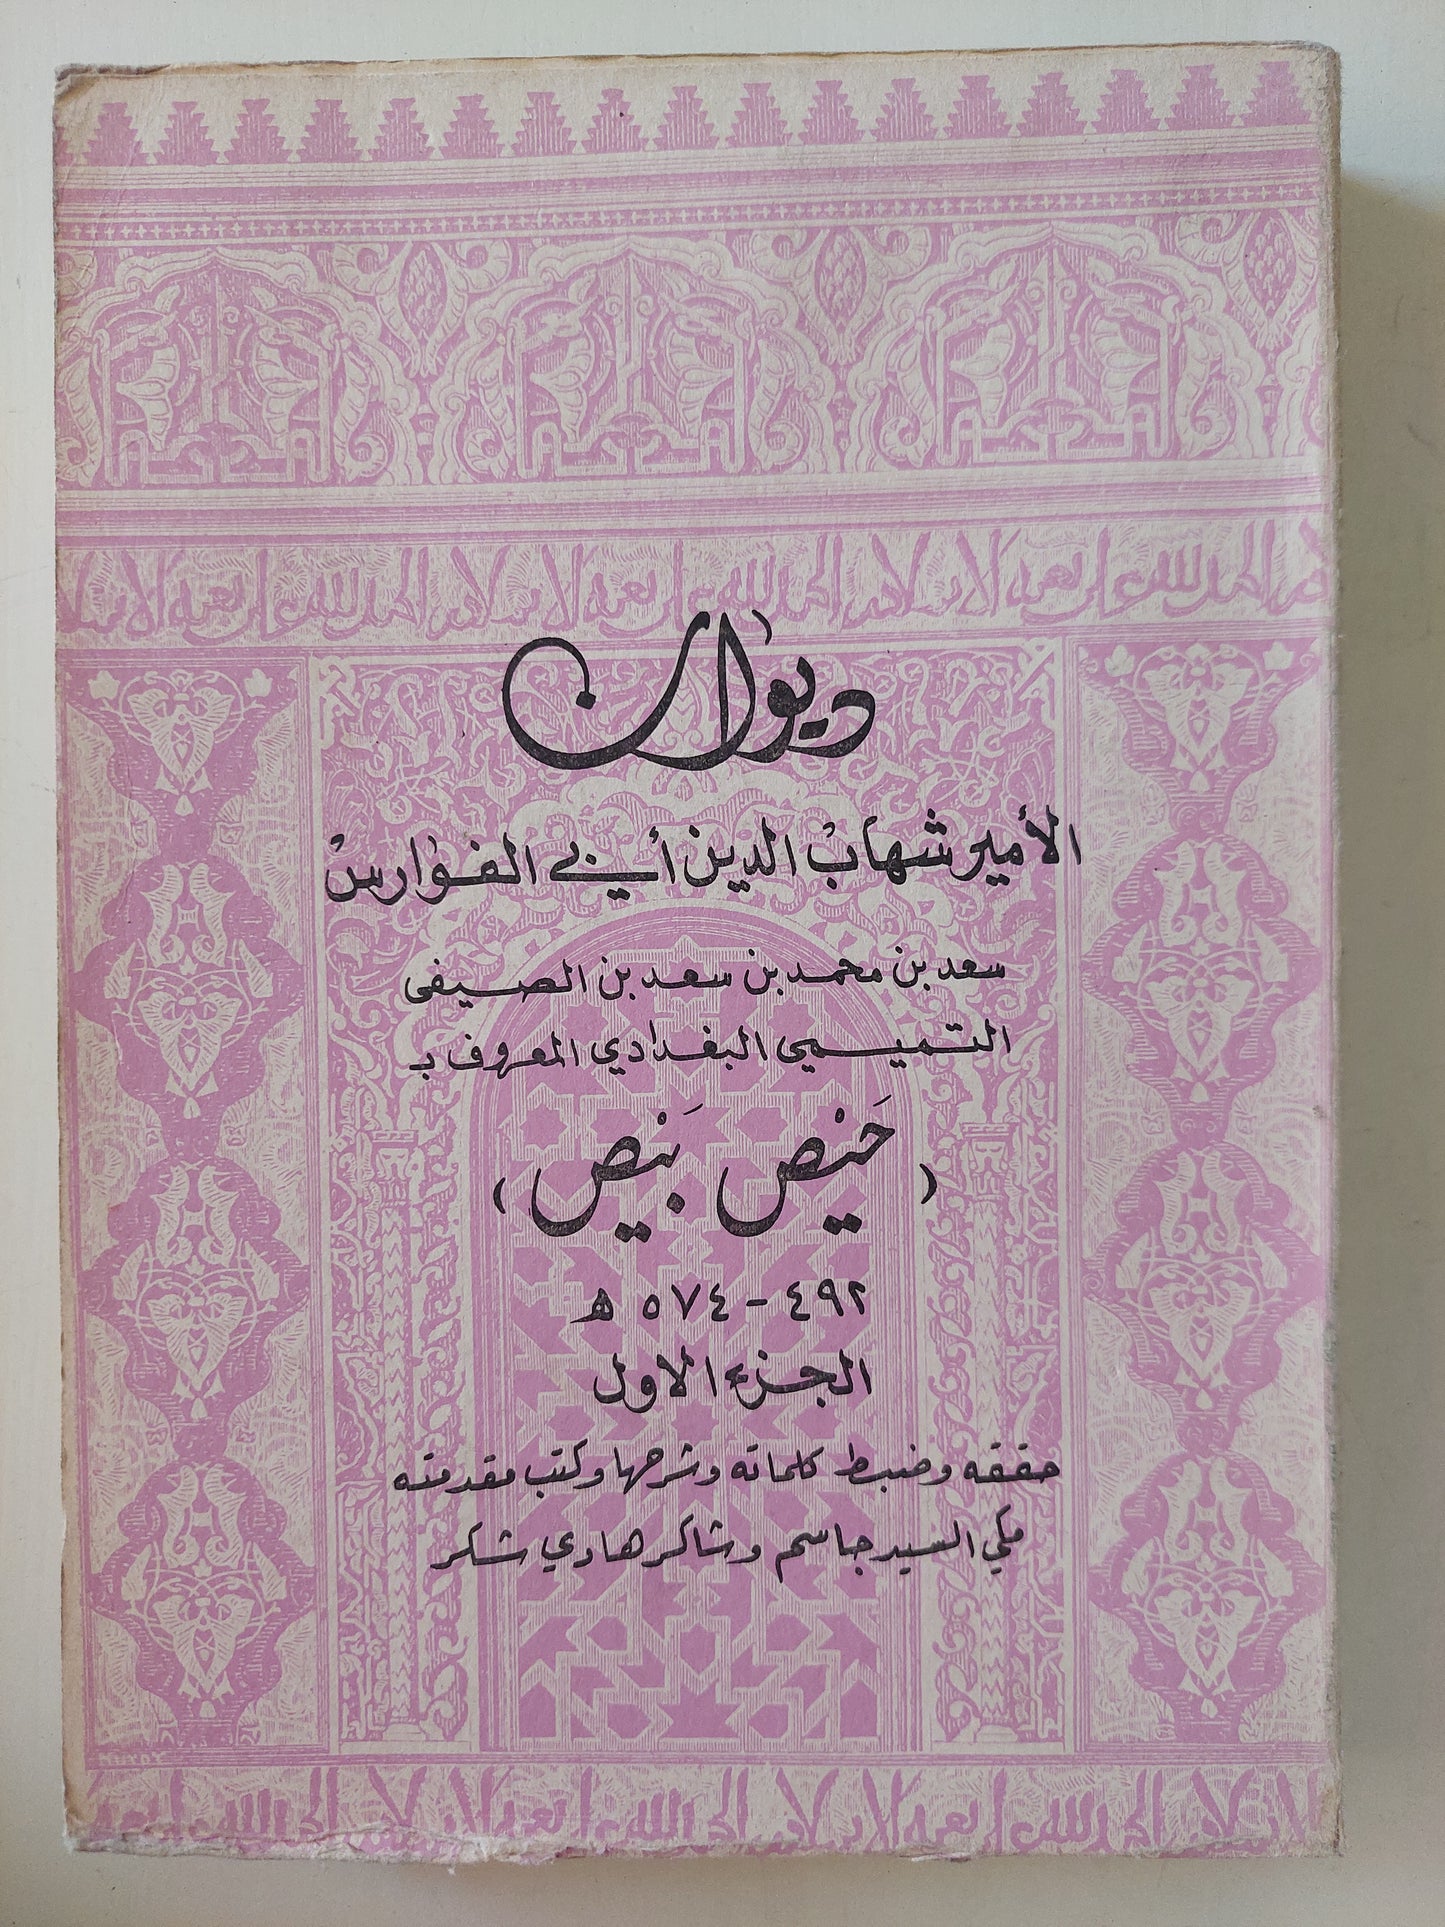 ديوان
الأمير شهاب الدين أبي الفوارس
سعد بن محمد بن سعد بن الصيفي
التميمي البغدادي المعروف بـ
( حَيْص بَيْص )
٤٩٢ - ٥٧٤ هـ
الجزء الاول
حققه وضبط كلماته وشرحها وكتب مقدمته
مكي السيد جاسم وشاكر هادي شكر